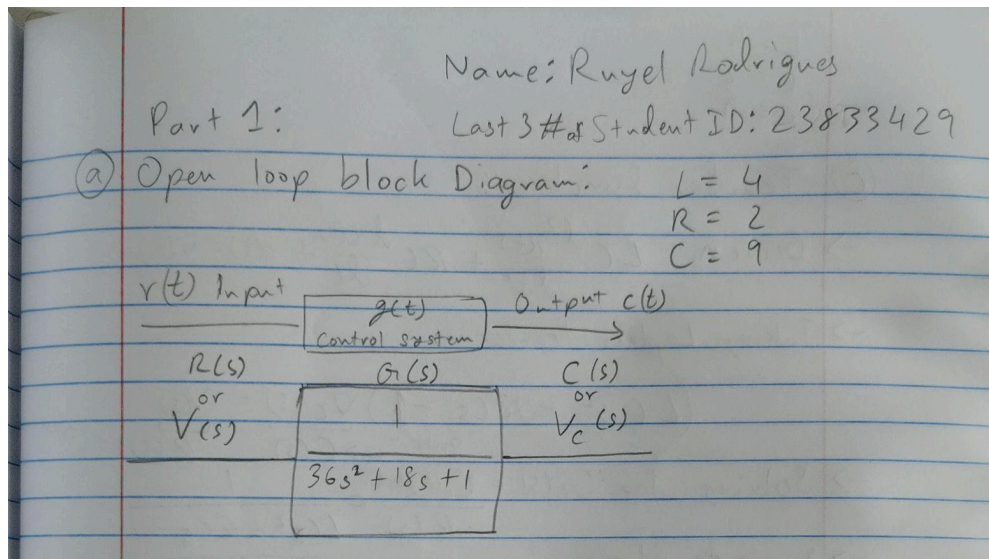 Name: Ruyel Rodrigues
Part 1:
Last 3 # of Student ID: 23833429
(a) Open loop block Diagram:
L = 4
R = 2
C = 9
r(t) Input
g(t)
control system
Output c(t)
R(s)
G(s)
C(s)
or
V(s)
1
36s² + 18s + 1
or
Vc(s)